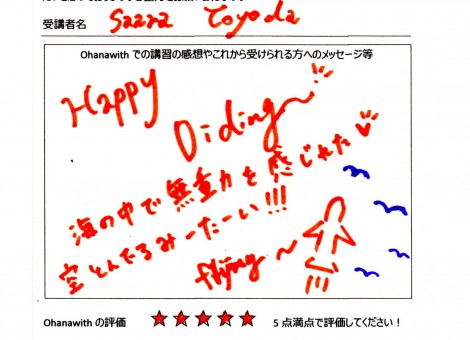 受講者名 Saara Toyoda
Ohanawith での講習の感想やこれから受けられる方へのメッセージ等
Happy
Diding~
海の中で無重力を感じれた
空とんでるみーたーい!!!
flying~
Ohanawith の評価 ★★★★★ 5 点満点で評価してください！